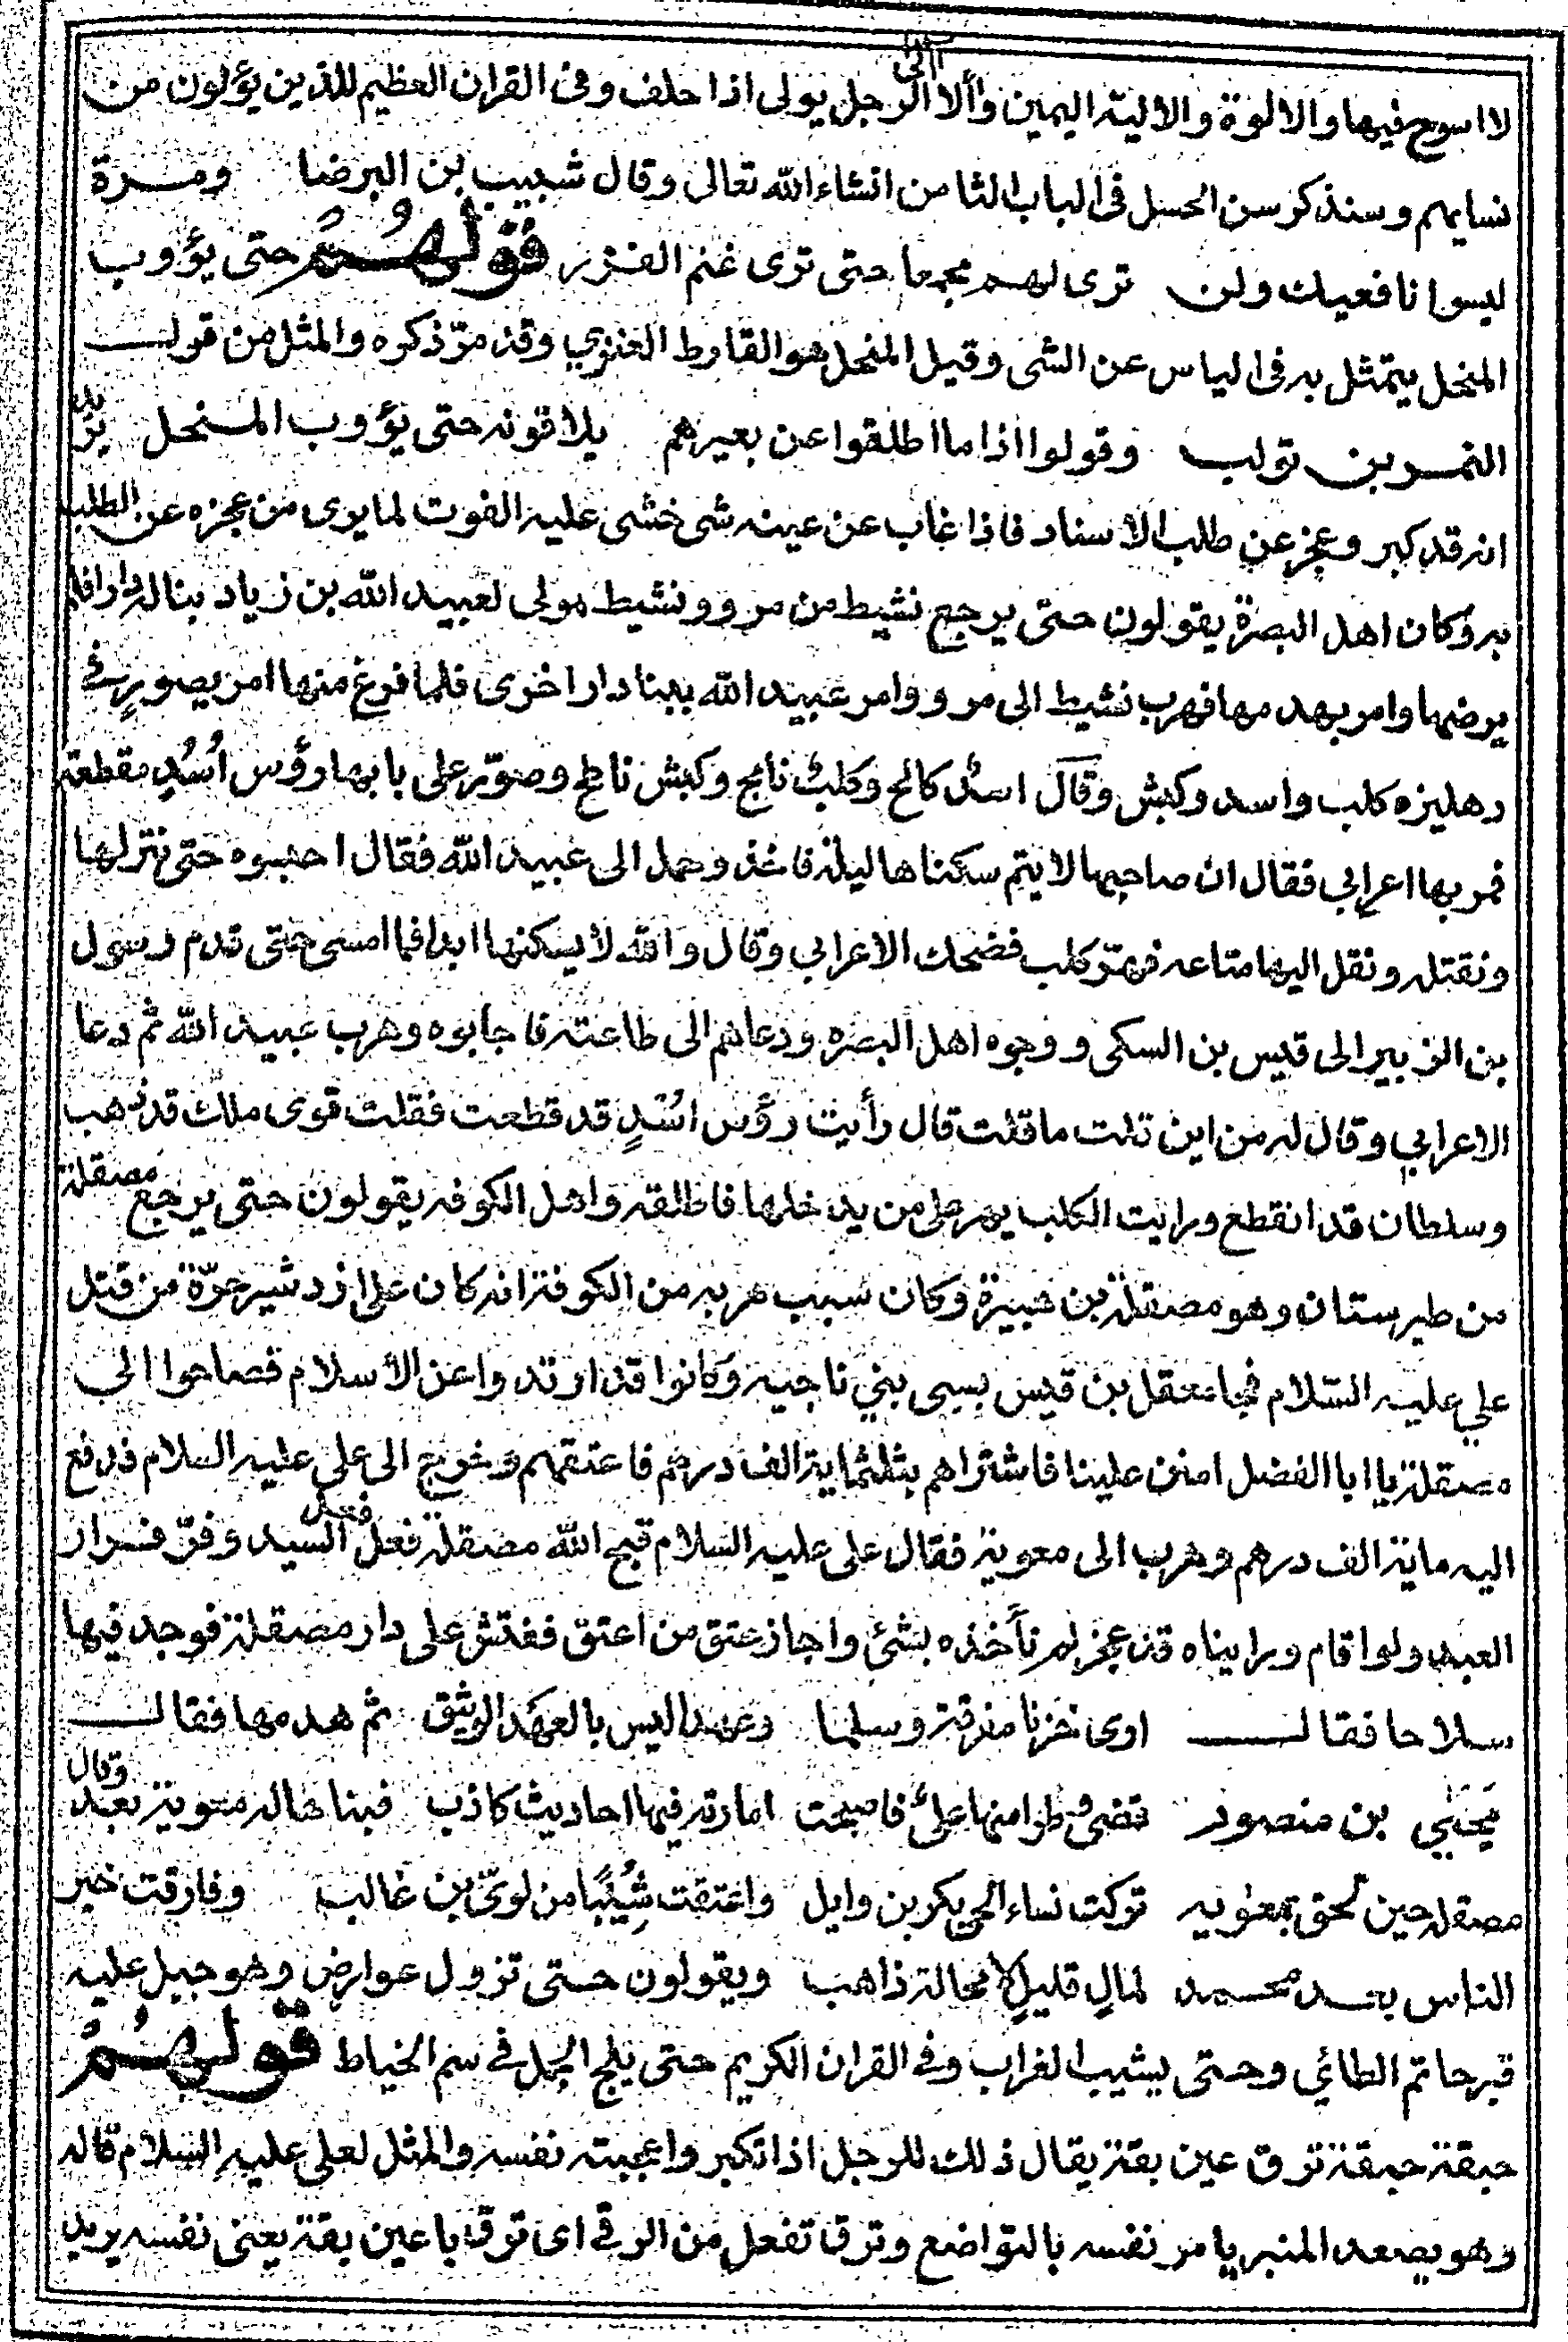 لا اسوح فيها والالوة والالية اليمين وألا الرجل يولى اذا حلف وفى القران العظيم للذين يؤلون من
نسايهم وسنذكر سن الحسل فى الباب الثامن انشاء الله تعالى وقال شبيب بن البرضا ومرة
ليسوا نافعيك ولن ترى لهم مجمعا حتى ترى غنم الفزر قولهم حتى يؤوب
المنخل يتمثل به فى الياس عن الشى وقيل المنخل هو القارط العنزي وقد مرّ ذكره والمثل من قول
النمر بن تولب وقولوا اذا ما اطلقوا عن بعيرهم يلاقونه حتى يؤوب المنخل يريد
انه قد كبر وعجز عن طلب الاسناد فاذا غاب عن عينه شى خشى عليه الفوت لما يرى من عجزه عن الطلب
به وكان اهل البصرة يقولون حتى يرجع نشيط من مرو ونشيط مولى لعبيد الله بن زياد بنا له دارا فلم
يرضها وامر بهدمها فهرب نشيط الى مرو وامر عبيد الله ببنا دار اخرى فلما فرغ منها امر يصور في
دهليزه كلب واسد وكبش وقال اسد كالح وكلب نابح وكبش ناطح وصوّر على بابها رؤس اُسُدٍ مقطعة
فمر بها اعرابي فقال ان صاحبها لا يتم سكناها ليلة فاخذ وحمل الى عبيد الله فقال احبسوه حتى ننزلها
ونقتله ونقل اليها متاعه فهتر كلب فضحك الاعرابي وقال والله لا يسكنها ابدا فما امسى حتى قدم رسول
بن الزبير الى قيس بن السكى ووجوه اهل البصره ودعاهم الى طاعته فاجابوه وهرب عبيد الله ثم دعا
الاعرابي وقال له من اين قلت ما قلت قال رأيت رؤس اسُدٍ قد قطعت فقلت قوى ملك قد ذهب
وسلطان قد انقطع ورايت الكلب يهر على من يدخلها فاطلقه واهل الكوفه يقولون حتى يرجع مصقلة
من طبرستان وهو مصقلة بن هبيرة وكان سبب هربه من الكوفة انه كان على ازدشير خرّة من قبل
علي عليه السّلام فجا معقل بن قيس بسبى بني ناجيه وكانوا قد ارتدوا عن الأسلام فصاحوا الى
مصقلة يا ابا الفضل امنن علينا فاشتراهم بثلثماية الف درهم فاعتقهم وخرج الى على عليه السلام فدفع
اليه ماية الف درهم وهرب الى معوية فقال على عليه السّلام قبح الله مصقلة فعل فعل السيد وفرّ فرار
العبد ولو اقام ورايناه قد عجز لم نأخذه بشئ واجاز عتق من اعتق ففتش على دار مصقلة فوجد فيها
سلاحا فقال اوى وسلما وعهدا ليس بالعهد الوثيق ثم هدمها فقال
يحيى بن منصور قضى وطرا منها علىٌ فاصبحت امارته فيها احاديث كاذب فبناها له معوية بعد وقال
مصقله حين لحق بمعويه تركت نساء الحي بكر بن وايل واعتقت سبيًا من لويّ بن غالب وفارقت خير
الناس بعد محمد لمالٍ قليلٍ لا محالة ذاهب ويقولون حتى تزول عوارض وهو جبل عليه
قبر حاتم الطائي وحتى يشيب الغراب وفى القران الكريم حتى يلج الجمل في سم الخياط قولهم
حبقة حبقة ترق عين بقة يقال ذلك للرجل اذا تكبر واعجبته نفسه والمثل لعلى عليه السلام قاله
وهو يصعد المنبر يامر نفسه بالتواضع وترق تفعل من الرقى اى ترق يا عين بقة يعنى نفسه يريد